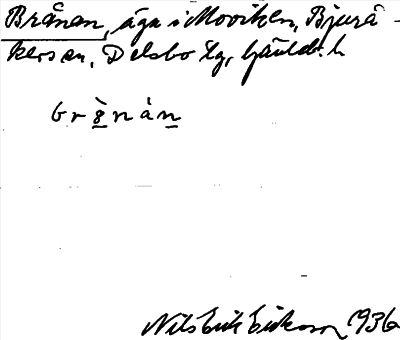 Brånan, äga i Mooviken, Bjurå-
kers sn, Delsbo tg,
br8̀nán
Nils Erik Eriksson 1936